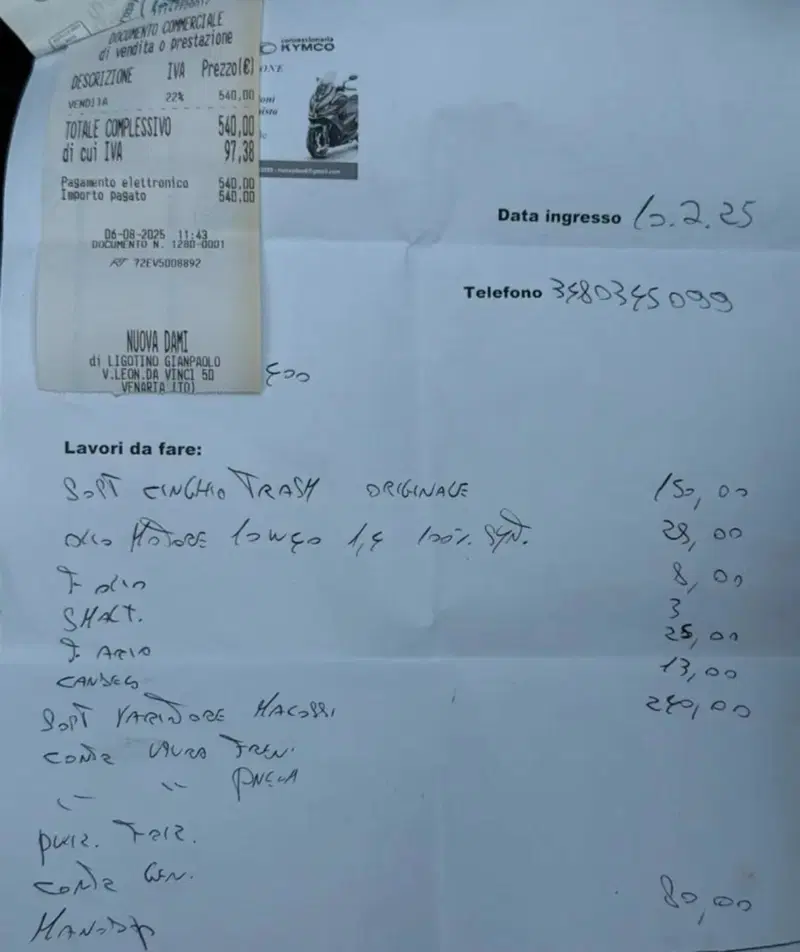 DOCUMENTO COMMERCIALE
di vendita o prestazione
DESCRIZIONE IVA Prezzo(€)
VENDITA 22% 540,00
TOTALE COMPLESSIVO 540,00
di cui IVA 97,38
Pagamento elettronico 540,00
Importo pagato 540,00
06-08-2025 11:43
DOCUMENTO N. 1280-0001
RT 72EV5008892
NUOVA DAMI
di LIGOTINO GIANPAOLO
V.LEON.DA VINCI 50
VENARIA (TO)
concessionaria
KYMCO
Data ingresso 10.2.25
Telefono 3480345099
400
Lavori da fare:
SOST CINGHIO TRASM ORIGINALE 150,00
OLIO MOTORE 10W40 1,4 100% SYN. 28,00
F OLIO 8,00
SMALT. 3
F. ARIA 25,00
CANDELA 13,00
SOST VARIATORE MALOSSI 240,00
CONTR USURA FREN.
" " PNEUM
PULIZ. FRIZ.
CONTR GEN.
MANOD 80,00